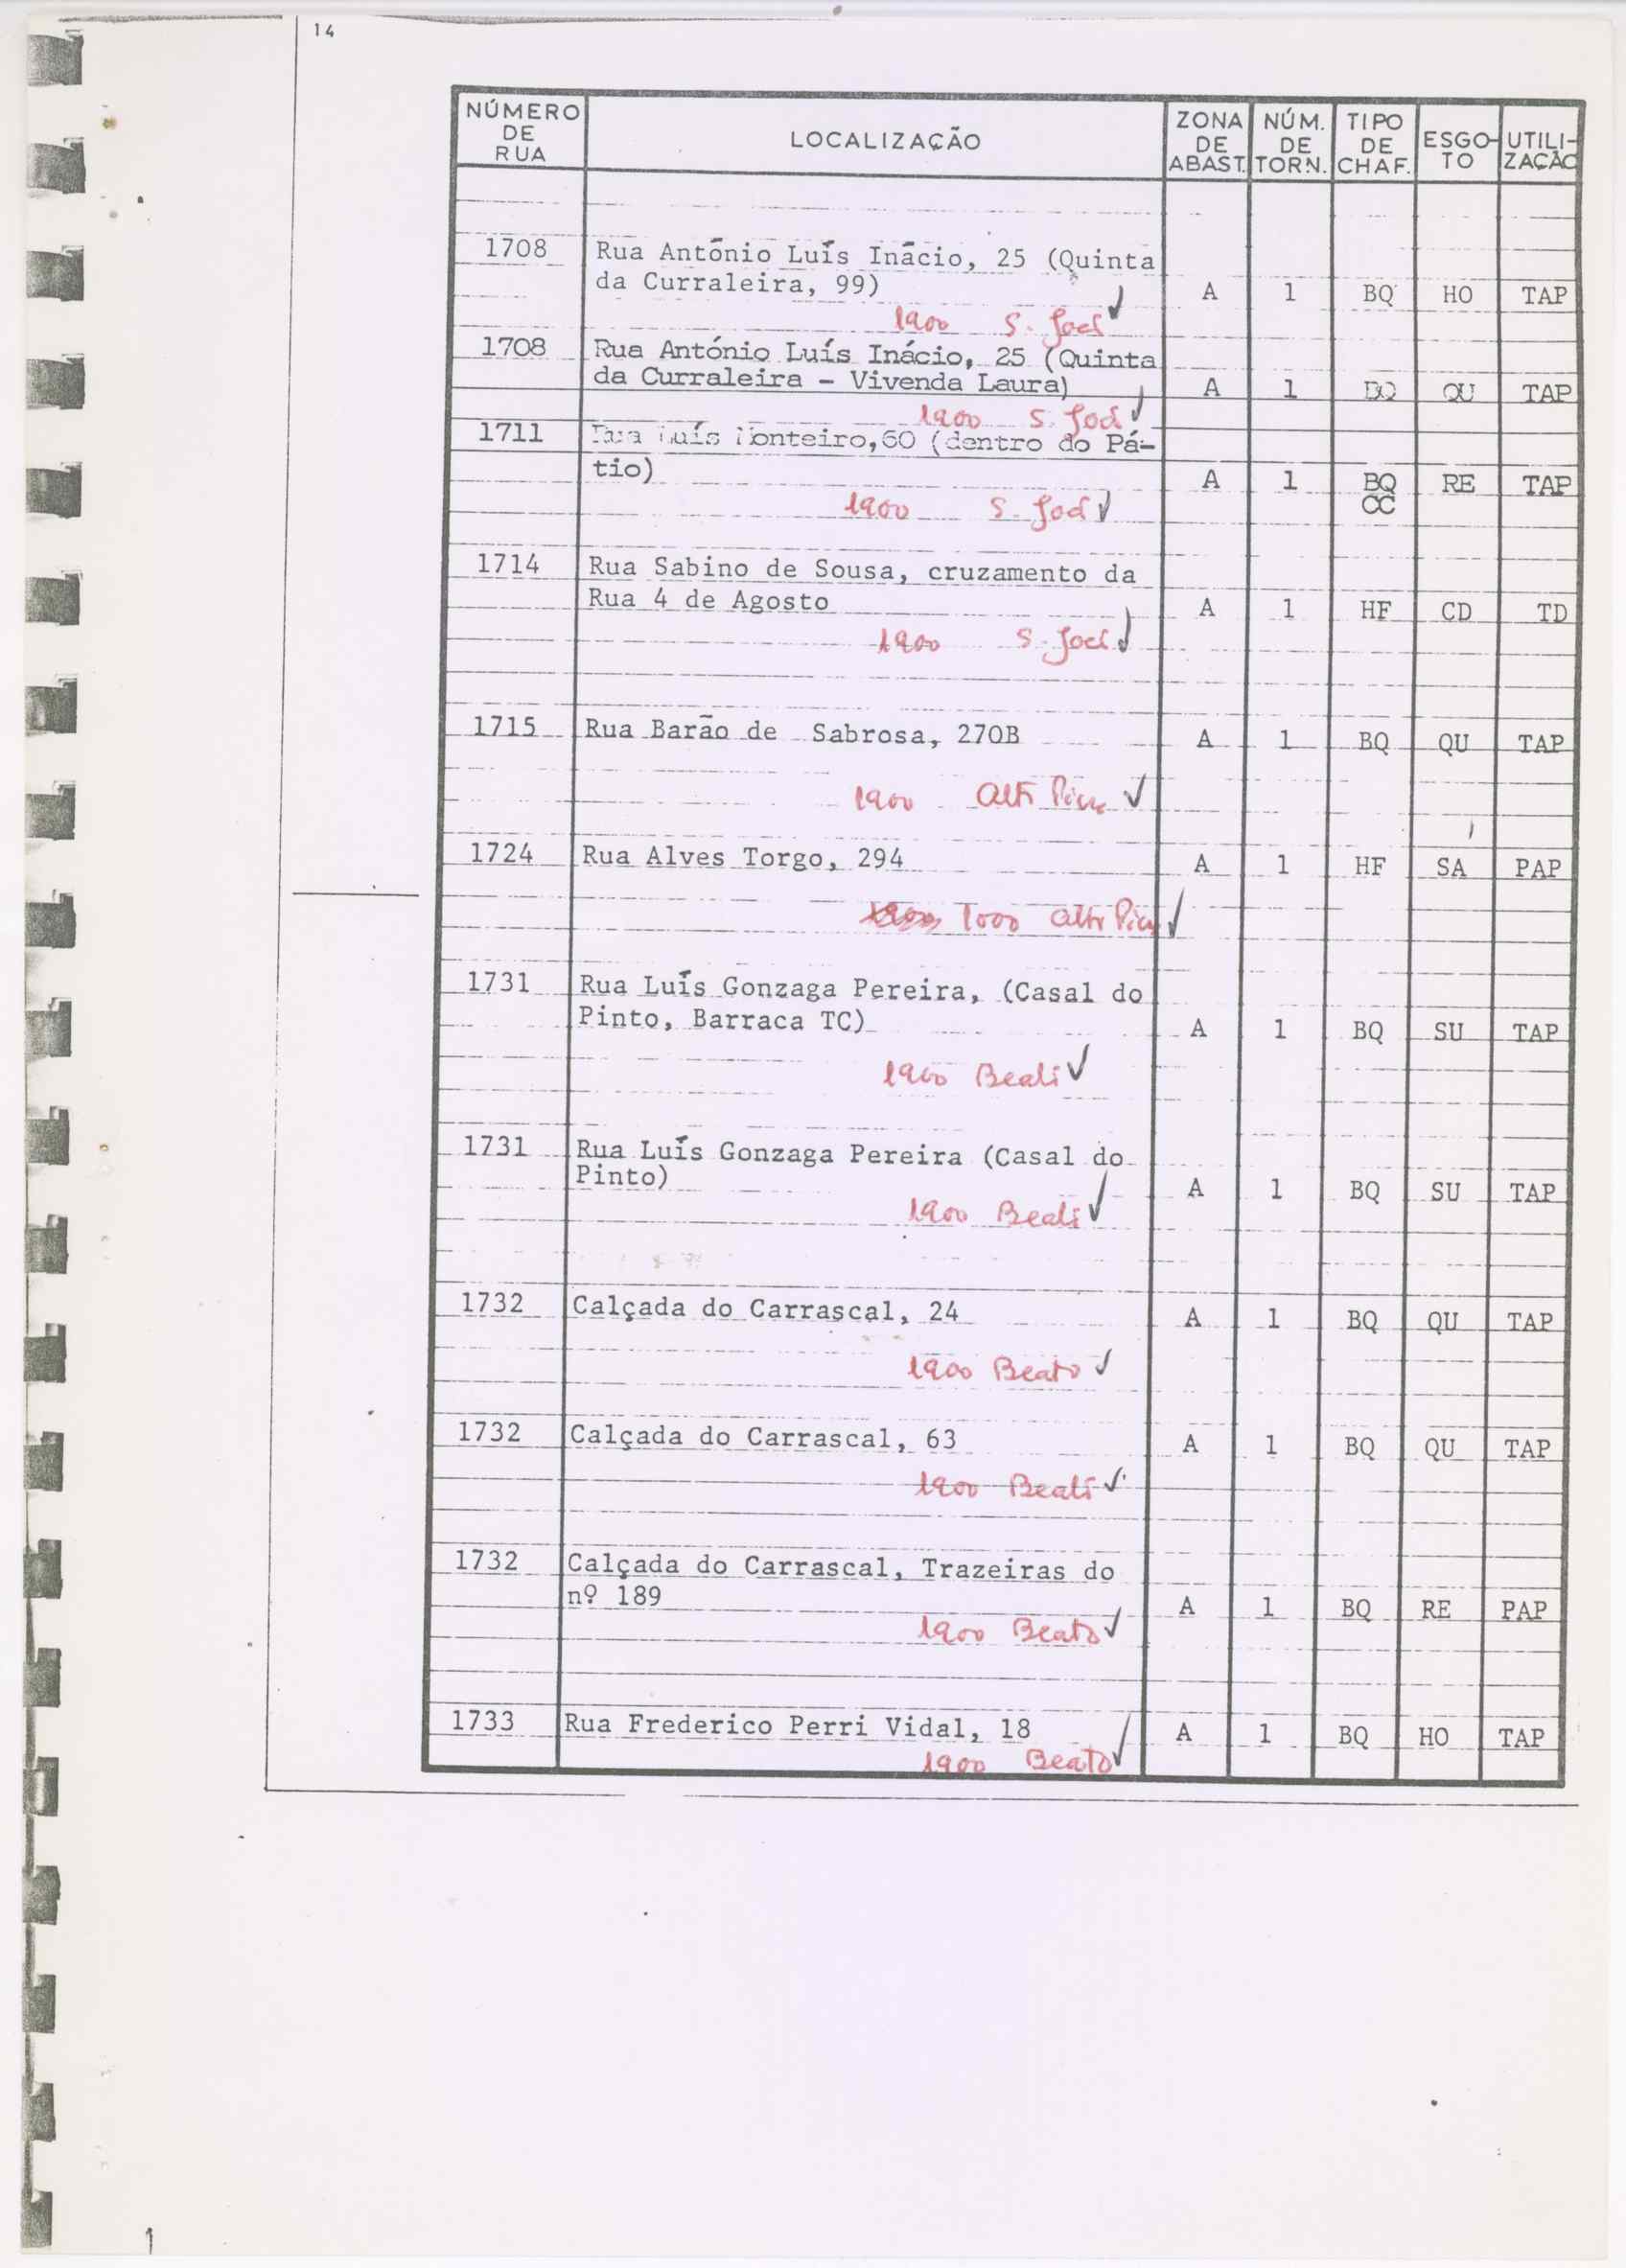 14
NÚMERO DE RUA LOCALIZAÇÃO ZONA DE ABAST. NÚM. DE TORN. TIPO DE CHAF. ESGO-TO UTILI-ZAÇÃO
1708 Rua António Luís Inácio, 25 (Quinta
da Curraleira, 99) A 1 BQ HO TAP
1900 S. João
1708 Rua António Luís Inácio, 25 (Quinta
da Curraleira - Vivenda Laura) A 1 QU TAP
1900 S. João
1711 Luís Monteiro, 60 (dentro do Pá-
tio) A 1 BQ RE TAP
CC
1900 S. João
1714 Rua Sabino de Sousa, cruzamento da
Rua 4 de Agosto A 1 HF CD TD
1900 S. João
1715 Rua Barão de Sabrosa, 270B A 1 BQ QU TAP
1900 Alto Pina
1724 Rua Alves Torgo, 294 A 1 HF SA PAP
1000 Alto Pina
1731 Rua Luís Gonzaga Pereira, (Casal do
Pinto, Barraca TC) A 1 BQ SU TAP
1900 Beato
1731 Rua Luís Gonzaga Pereira (Casal do
Pinto) A 1 BQ SU TAP
1900 Beato
1732 Calçada do Carrascal, 24 A 1 BQ QU TAP
1900 Beato
1732 Calçada do Carrascal, 63 A 1 BQ QU TAP
1900 Beato
1732 Calçada do Carrascal, Trazeiras do
nº 189 A 1 BQ RE PAP
1900 Beato
1733 Rua Frederico Perri Vidal, 18 A 1 BQ HO TAP
1900 Beato